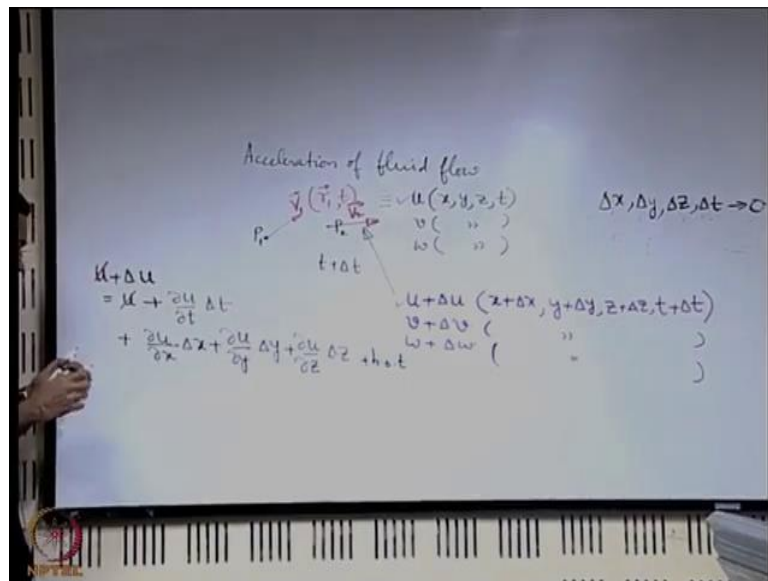 Acceleration of fluid flow
V⃗₁(r⃗₁, t) ≡ u(x, y, z, t)
v( " )
w( " )
Δx, Δy, Δz, Δt → 0
P₁ P₂
t+Δt
u+Δu
= u + ∂u/∂t Δt
+ ∂u/∂x Δx + ∂u/∂y Δy + ∂u/∂z Δz + h.o.t
u+Δu (x+Δx, y+Δy, z+Δz, t+Δt)
v+Δv ( " )
w+Δw ( " )
NPTEL